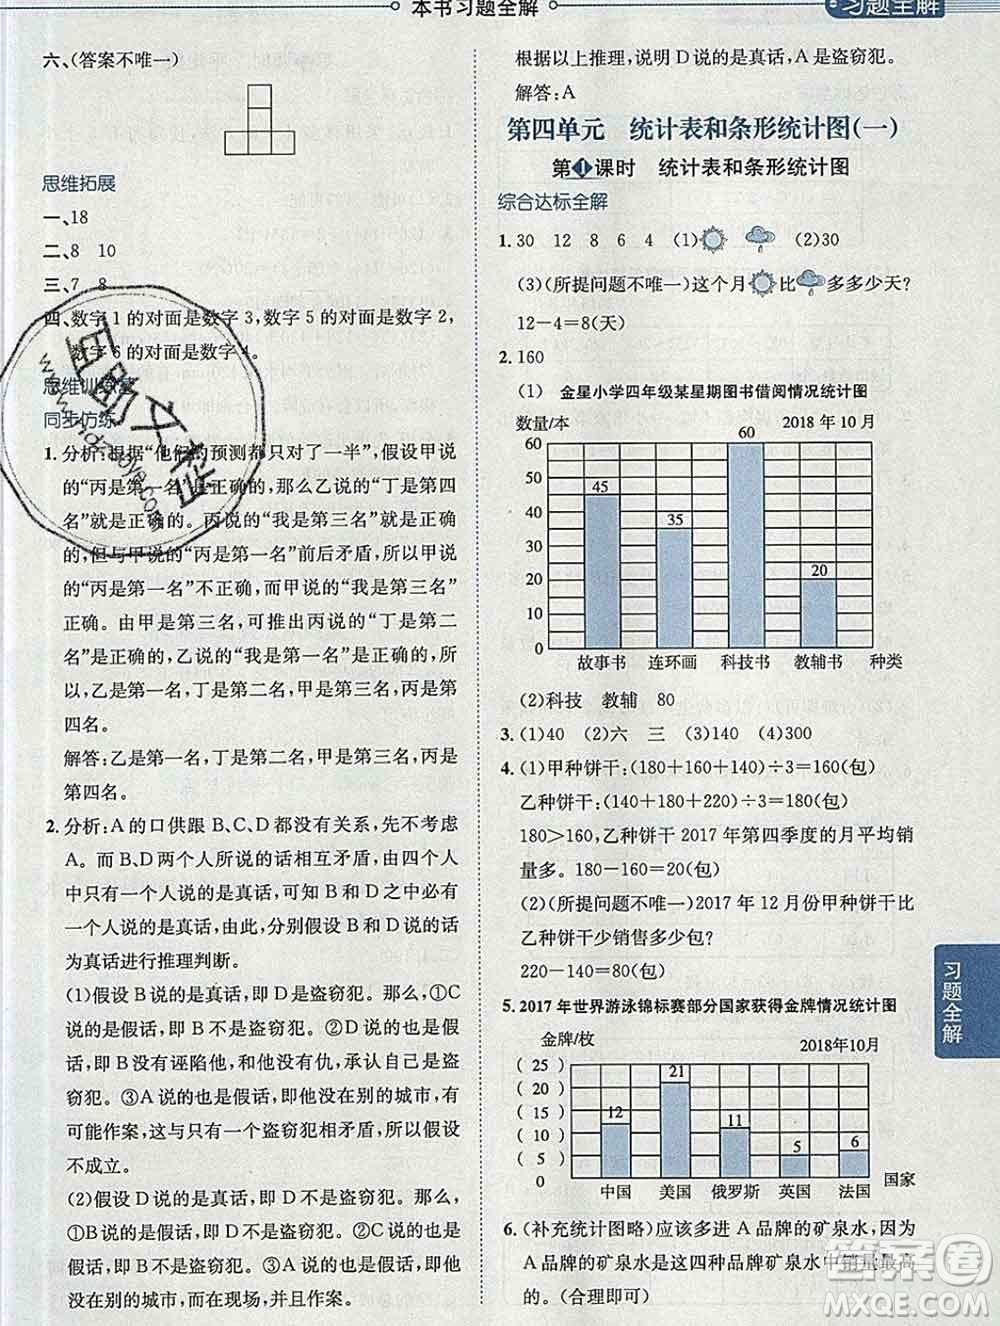 本书习题全解
习题全解
六、(答案不唯一)
思维拓展
一、18
二、8 10
三、7 8
四、数字1的对面是数字3,数字5的对面是数字2,
数字6的对面是数字4。
思维训练营
同步仿练
1. 分析:根据“他们的预测都只对了一半”,假设甲说
的“丙是第一名”是正确的,那么乙说的“丁是第四
名”就是正确的。丙说的“我是第三名”就是正确
的,但与甲说的“丙是第一名”前后矛盾,所以甲说
的“丙是第一名”不正确,而甲说的“我是第三名”
是正确的。丙说的“丁是第二
名”是正确的,乙说的“我是第一名”是正确的,所
以,乙是第一名,丁是第二名,甲是第三名,丙是第
四名。
解答:乙是第一名,丁是第二名,甲是第三名,丙是
第四名。
2. 分析:A的口供跟B、C、D都没有关系,先不考虑
A。而B、D两个人所说的话相互矛盾,这两个人
中只有一个人说的是真话,B和D之中必有一个人说的是真话,
由此,分别假设B和D说的话
为真话进行推理判断。
(1)假设B说的是真话,即D是盗窃犯。那么,①C
说的是假话,即D是盗窃犯。②D说的是假话,即B没有诬陷他,
③A说的也是假话,即A是盗窃犯。
不成立。
(2)假设D说的是真话,即D不是盗窃犯。那么,
①B说的是假话,即D不是盗窃犯。②C说的是假
他不是在别的城市,而在现场,并且作案。
根据以上推理,说明D说的是真话,A是盗窃犯。
解答:A
第四单元 统计表和条形统计图(一)
第1课时 统计表和条形统计图
综合达标全解
1. 30 12 8 6 4 (1) (2)30
(3)(所提问题不唯一)这个月比多多少天?
12-4=8(天)
2. 160
(1) 金星小学四年级某星期图书借阅情况统计图
数量/本 2018年10月
60
50
40
30
20
10
0
45 35 60 20
故事书 连环画 科技书 教辅书 种类
(2)科技 教辅 80
3. (1)40 (2)六 三 (3)140 (4)300
4. (1)甲种饼干:(180+160+140)÷3=160(包)
乙种饼干:(140+180+220)÷3=180(包)
180>160,乙种饼干2017年第四季度的月平均销
量多。180-160=20(包)
(2)(所提问题不唯一)2017年12月份甲种饼干比
乙种饼干少销售多少包?
220-140=80(包)
5. 2017年世界游泳锦标赛部分国家获得金牌情况统计图
金牌/枚 2018年10月
(25)
(20)
(15)
(10)
(5)
0
12 21 11 5 6
中国 美国 俄罗斯 英国 法国 国家
6. (补充统计图略)应该多进A品牌的矿泉水,因为
A品牌的矿泉水是这四种品牌矿泉水中销量最高
的。(合理即可)
习题全解
互助文档
答案圈
MXQE.COM